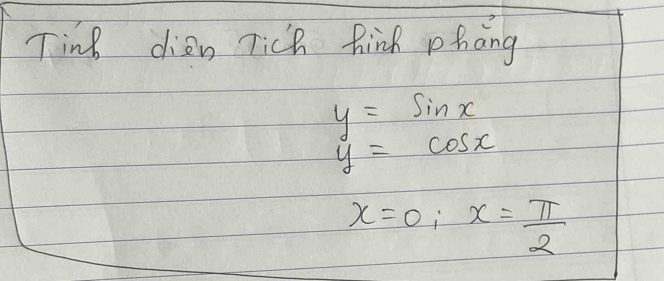 Tính diện Tích hình phẳng
y = sinx
y = cosx
x=0; x = π/2